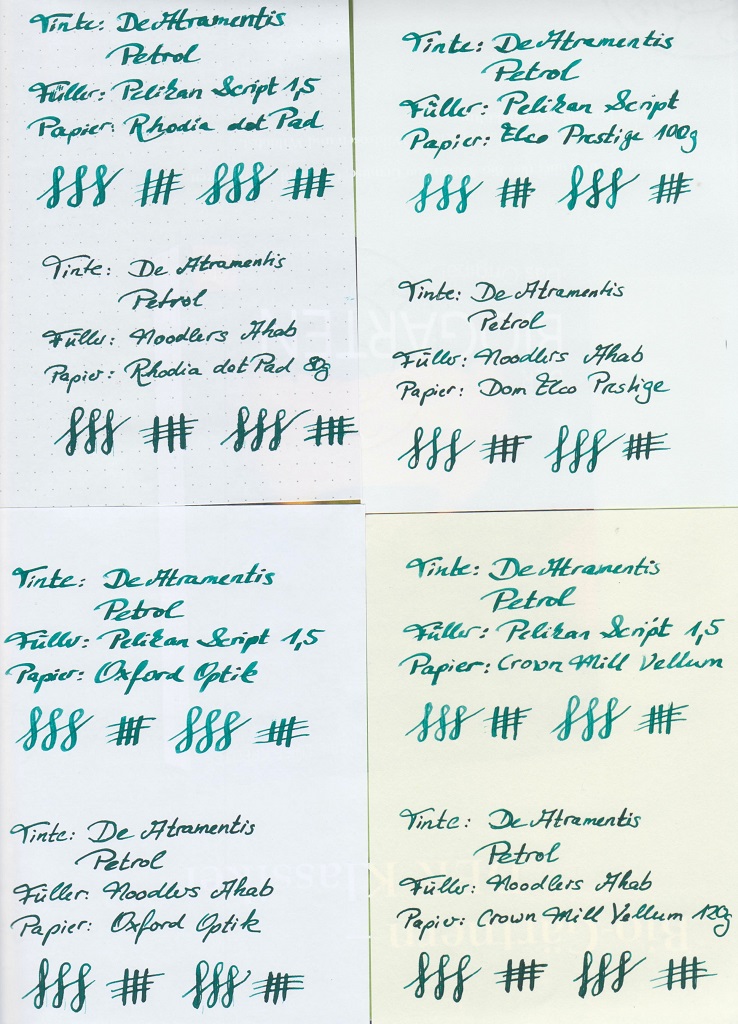 Tinte: De Atramentis
Petrol
Füller: Pelikan Script 1,5
Papier: Rhodia dot Pad
Tinte: De Atramentis
Petrol
Füller: Noodlers Ahab
Papier: Rhodia dot Pad 80g
Tinte: De Atramentis
Petrol
Füller: Pelikan Script
Papier: Elco Prestige 100g
Tinte: De Atramentis
Petrol
Füller: Noodlers Ahab
Papier: Dom Elco Prestige
Tinte: De Atramentis
Petrol
Füller: Pelikan Script 1,5
Papier: Oxford Optik
Tinte: De Atramentis
Petrol
Füller: Noodlers Ahab
Papier: Oxford Optik
Tinte: De Atramentis
Petrol
Füller: Pelikan Script 1,5
Papier: Crown Mill Vellum
Tinte: De Atramentis
Petrol
Füller: Noodlers Ahab
Papier: Crown Mill Vellum 120g